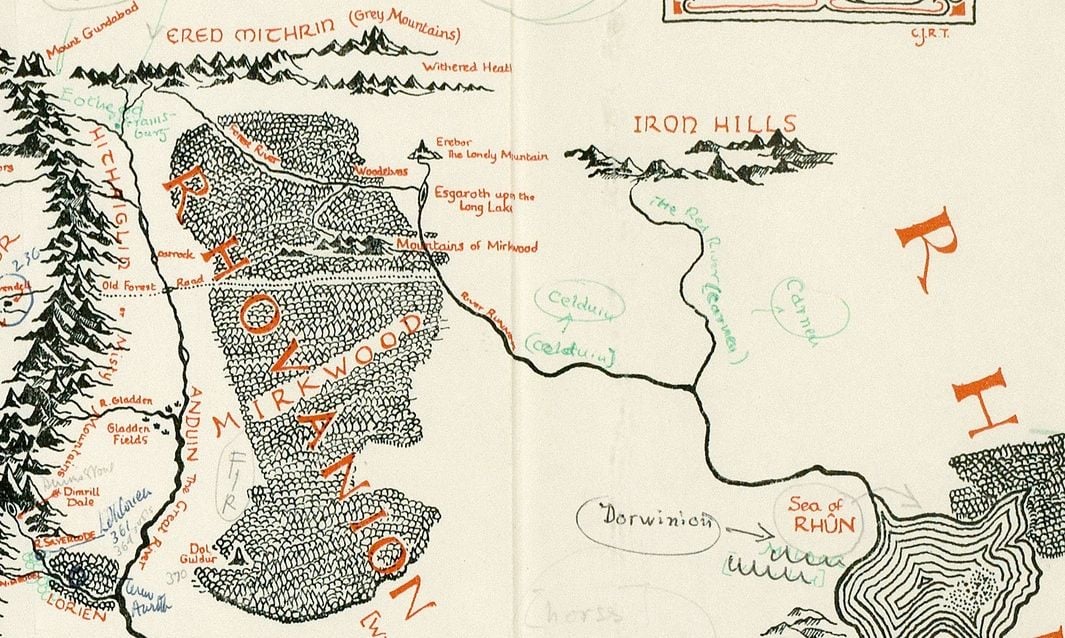 Mount Gundabad
ERED MITHRIN (Grey Mountains)
C.J.R.T.
Withered Heath
Framsburg
IRON HILLS
Erebor
The Lonely Mountain
Forest River
Woodelves
Esgaroth upon the
Long Lake
HITHAEGLIR or Misty Mountains
The Red River (Carnen)
RHOVANION
RH
Mountains of Mirkwood
236
Old Forest Road
Celduin
Carnen
River Running
(Celduin)
MIRKWOOD
R. Gladden
Gladden
Fields
ANDUIN The Great River
FIR
Dimrill
Dale
Lothlórien
361
Dorwinion
Sea of
RHÛN
R. SILVERLODE
Dol
Guldur
390
LORIEN
[horse]